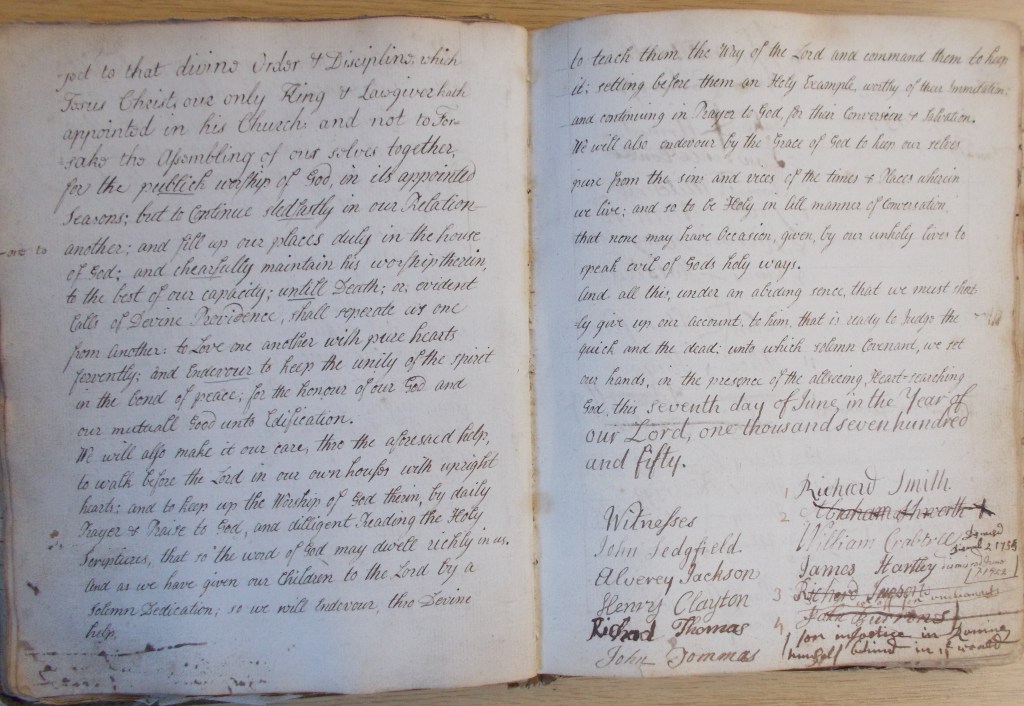 ject to that divine Order & Discipline, which
Jesus Christ, our only King & Lawgiver hath
appointed in his Church: and not to For-
sake the Assembling of our selves together,
for the publick worship of God, in its appointed
Seasons; but to Continue stedfastly in our Relation
one to another; and fill up our places duly in the house
of God; and chearfully maintain his worship therein,
to the best of our capacity; untill Death; or, evident
Calls of Devine Providence, shall seperate us one
from another: to Love one another with pure hearts
fervently; and Endevour to keep the unity of the spirit
in the bond of peace; for the honour of our God and
our mutuall Good unto Edification.
We will also make it our care, thro the aforesaid help,
to walk before the Lord in our own houses with upright
hearts: and to keep up the Worship of God therin, by daily
Prayer & Praise to God, and dilligent Reading the Holy
Scriptures, that so the word of God may dwell richly in us.
And as we have given our Children to the Lord by a
Solemn Dedication; so we will Endevour, thro Devine
help,
to teach them the Way of the Lord and command them to keep
it; setting before them an Holy Example, worthy of their Immitation;
and continuing in Prayer to God, for their Conversion & Salvation.
We will also endevour by the Grace of God to keep our selves
pure from the sins and vices of the times & Places wherein
we live; and so to be Holy in all manner of Conversation
that none may have Occasion, given, by our unholy lives to
speak evil of Gods holy ways.
And all this, under an abiding sence, that we must short
ly give up our account, to him, that is ready to Judge the
quick and the dead; unto which solemn Covenand, we set
our hands, in the presence of the allseeing, Heart-searching
God, this seventh day of June, in the Year of
our Lord, one thousand seven hundred
and fifty.
Witnesses
John Sedgfield
Alverey Jackson
Henry Clayton
Richard Thomas
John Tommas
1 Richard Smith
2 Abraham Ashworth
William Crabtree
James Hartley
3 Richard
4 John Burrones
for injustice in Runing
himself behind in ye world